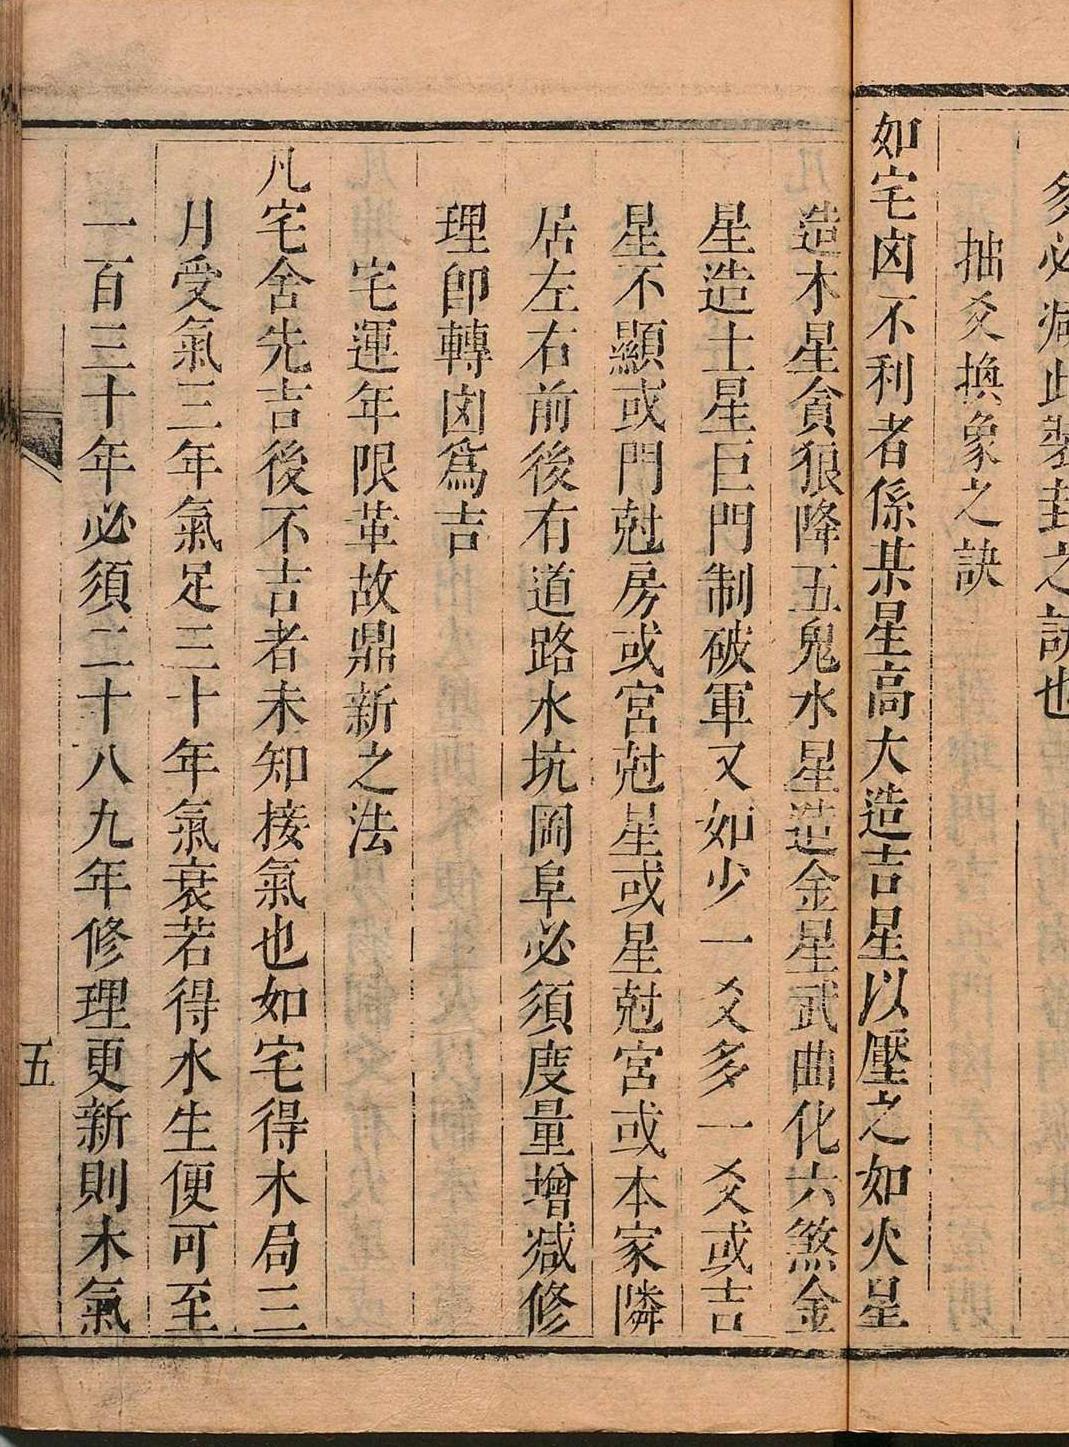 多必減此裝卦之訣也
抽爻換象之訣
如宅凶不利者係某星高大造吉星以壓之如火星
造木星貪狼降五鬼水星造金星武曲化六煞金
星造土星巨門制破軍又如少一爻多一爻或吉
星不顯或門尅房或宮尅星或星尅宮或本家隣
居左右前後有道路水坑岡阜必須度量增減修
理卽轉凶爲吉
宅運年限革故鼎新之法
凡宅舍先吉後不吉者未知接氣也如宅得木局三
月受氣三年氣足三十年氣衰若得水生便可至
一百三十年必須二十八九年修理更新則木氣
五